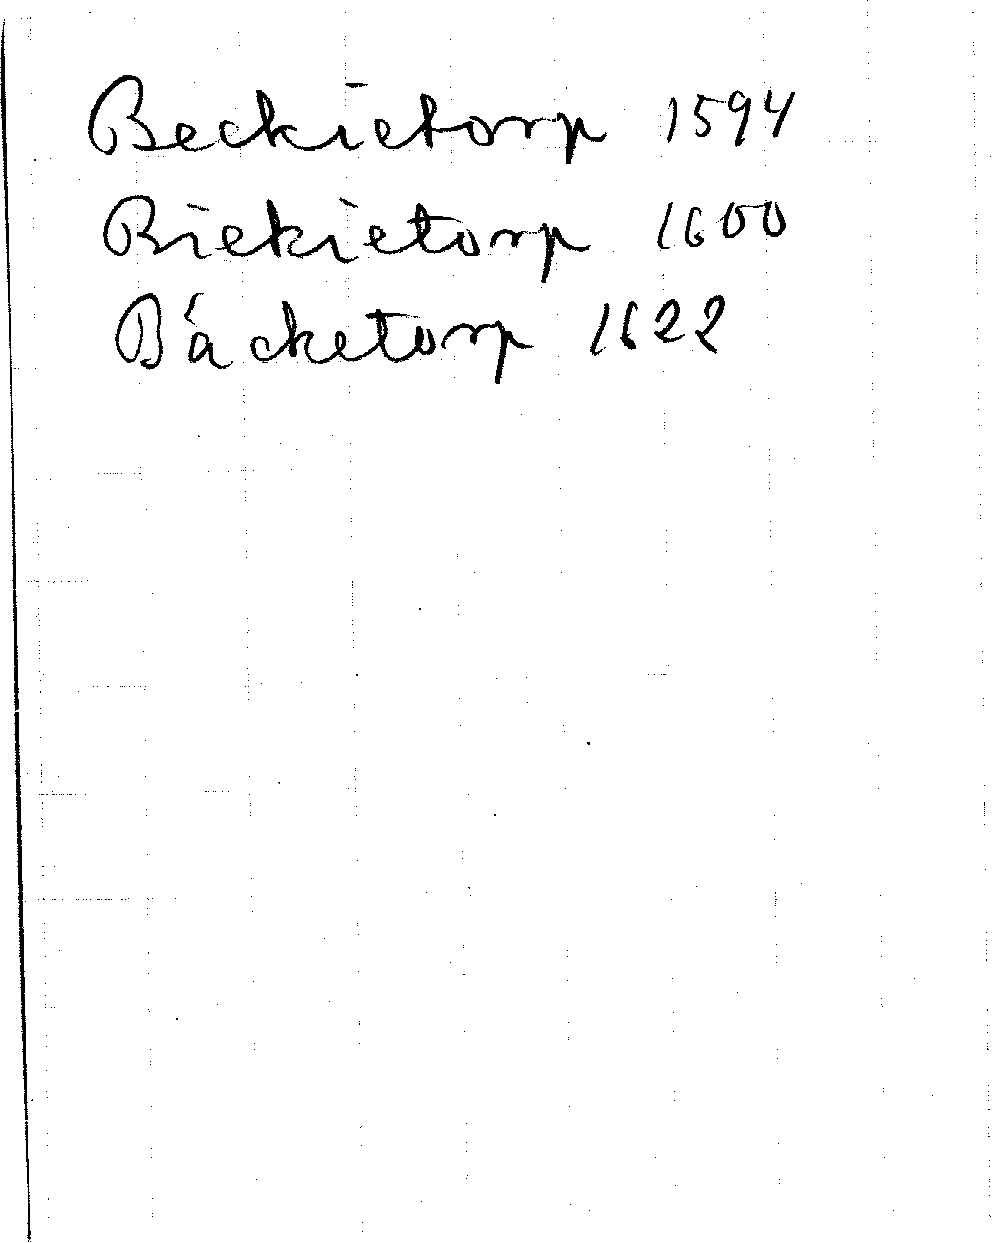 Beckietorp 1594
Biekietorp 1600
Bäcketorp 1622